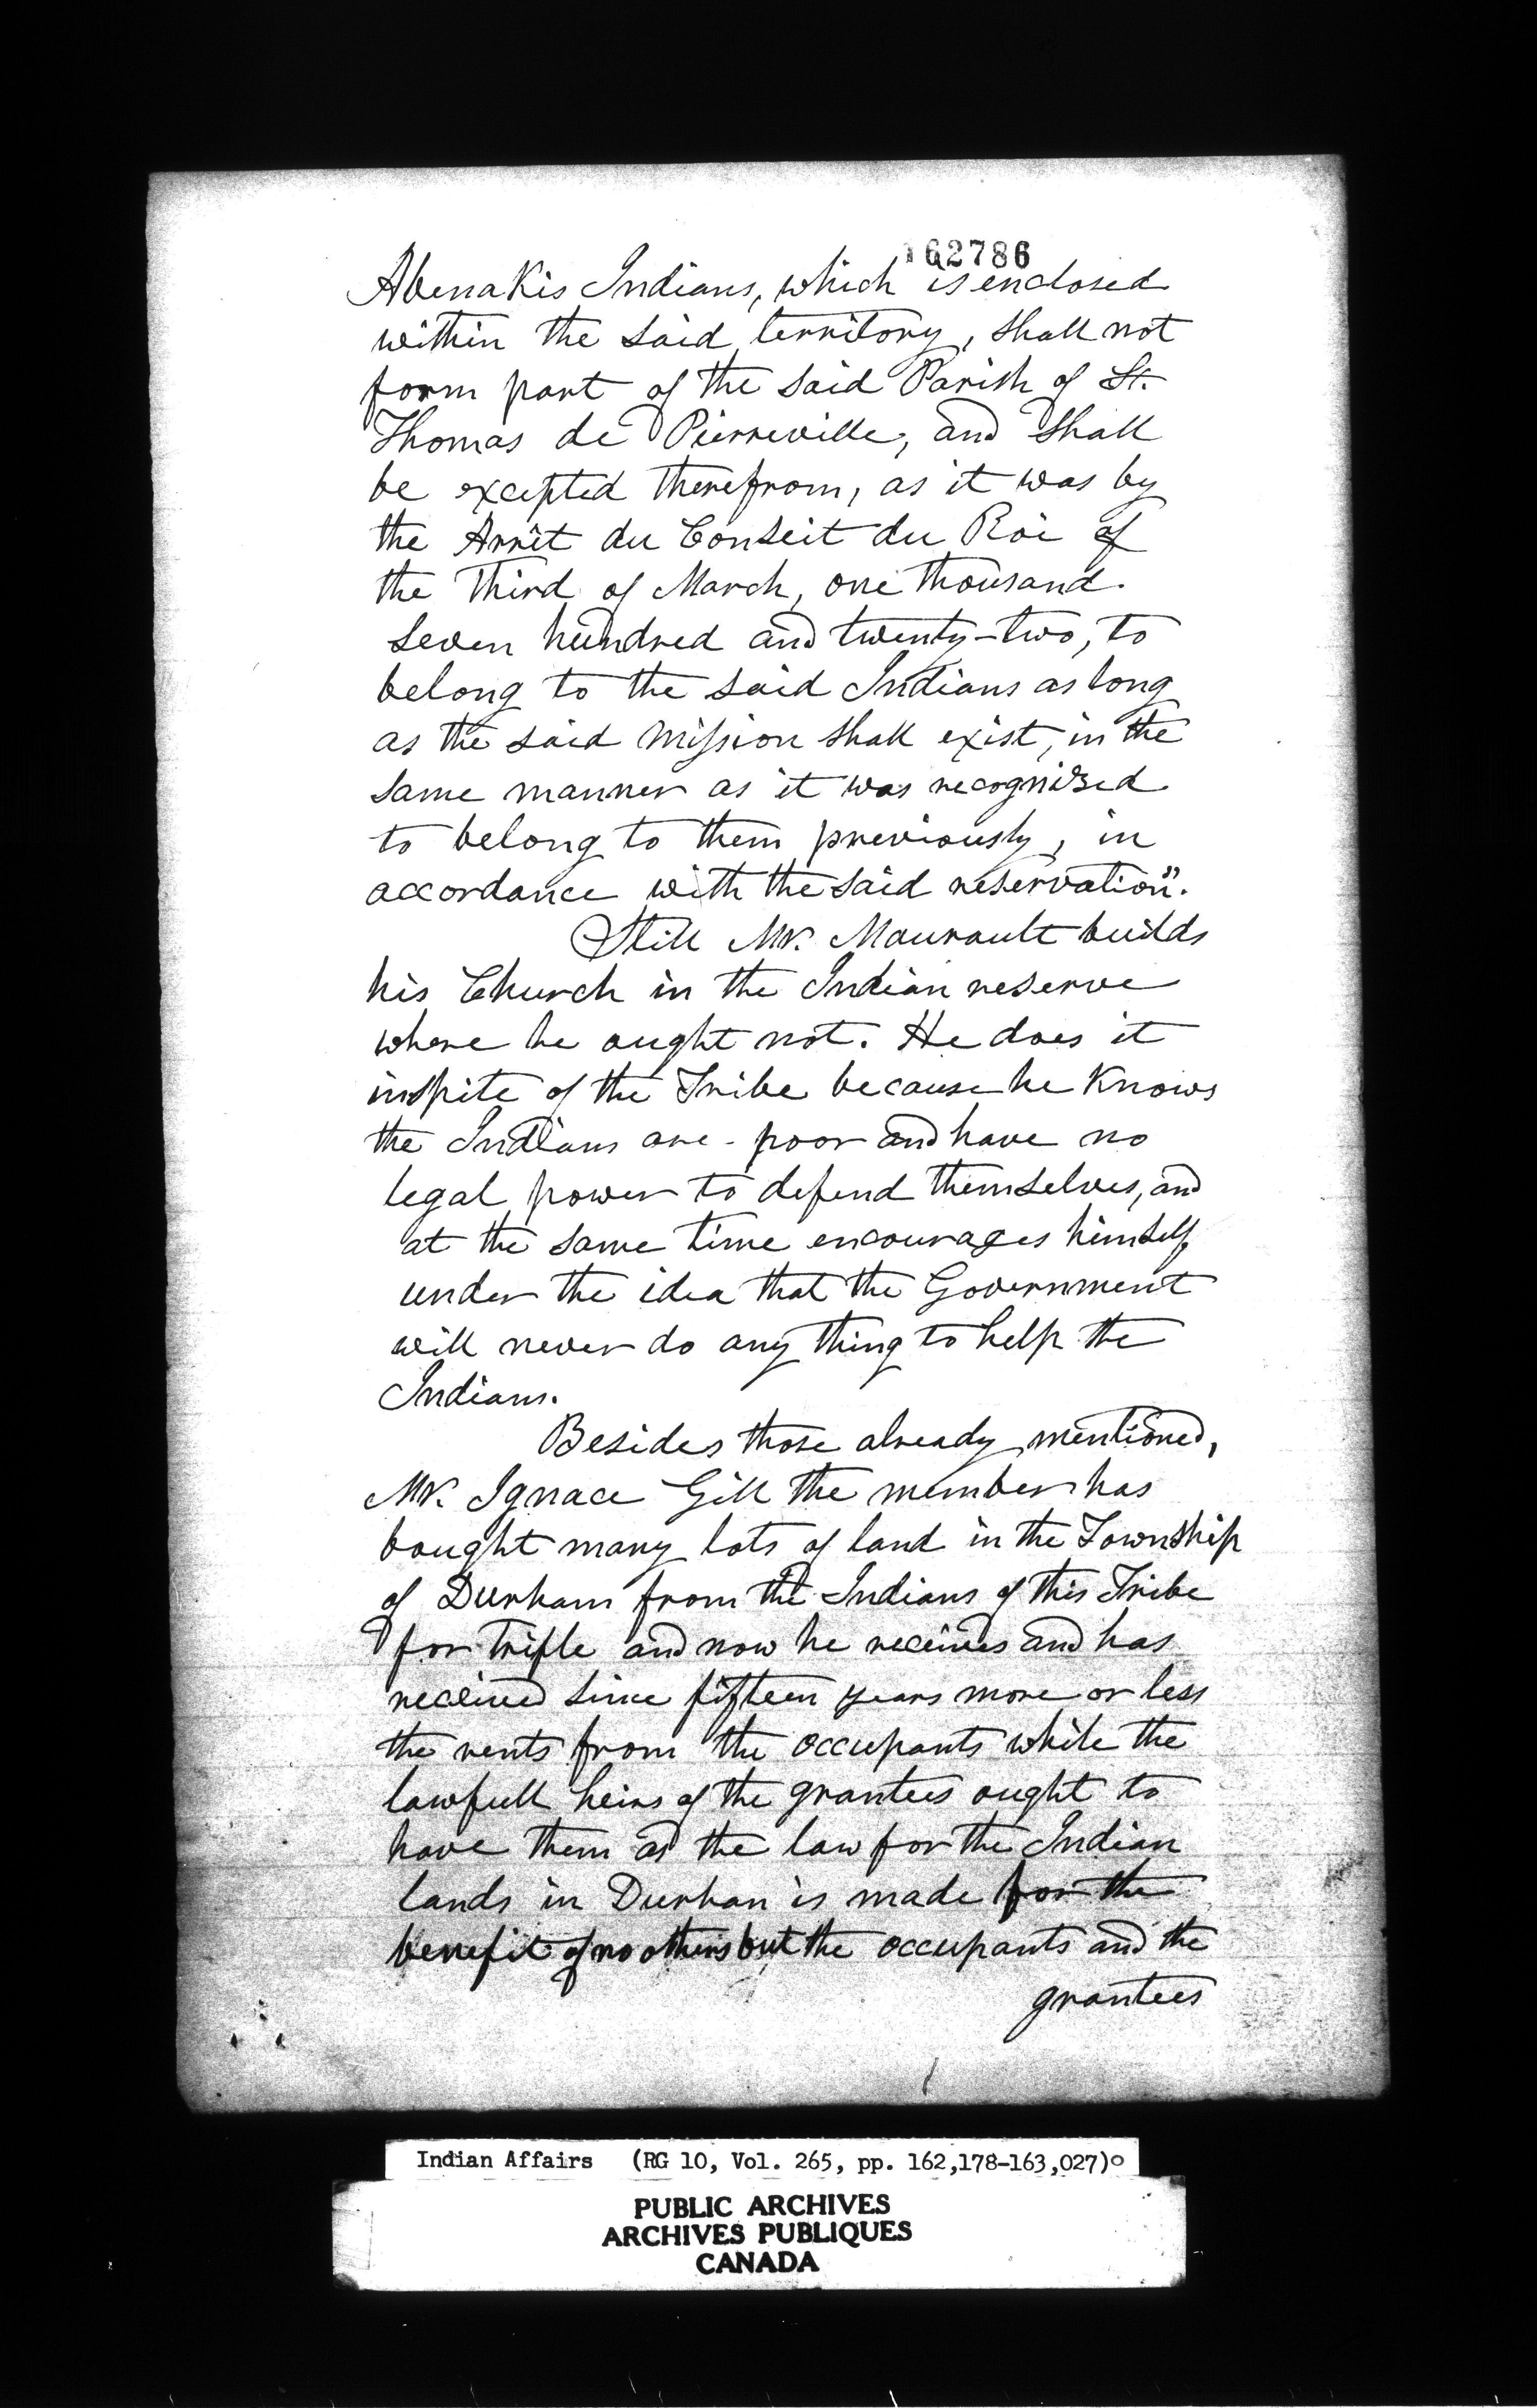 162786
Abenakis Indians, which is enclosed
within the said territory, shall not
form part of the said Parish of St.
Thomas de Pierreville, and shall
be excepted therefrom, as it was by
the Arrêt du Conseit du Roi of
the third of March, one thousand
seven hundred and twenty-two, to
belong to the said Indians as long
as the said Mission shall exist, in the
same manner as it was recognized
to belong to them previously, in
accordance with the said reservation".
Still Mr. Maurault builds
his Church in the Indian reserve
where he ought not. He does it
inspite of the Tribe because he knows
the Indians are - poor and have no
legal power to defend themselves, and
at the same time encourages himself
under the idea that the Government
will never do any thing to help the
Indians.
Besides those already mentioned,
Mr. Ignace Gill the member has
bought many lots of land in the Township
of Durham from the Indians of this Tribe
for trifle and now he receives and has
received since fifteen years more or less
the rents from the occupants while the
lawfull heirs of the grantees ought to
have them as the law for the Indian
lands in Durhan is made for the
benefit of no others but the occupants and the
grantees
Indian Affairs (RG 10, Vol. 265, pp. 162,178-163,027)
PUBLIC ARCHIVES
ARCHIVES PUBLIQUES
CANADA